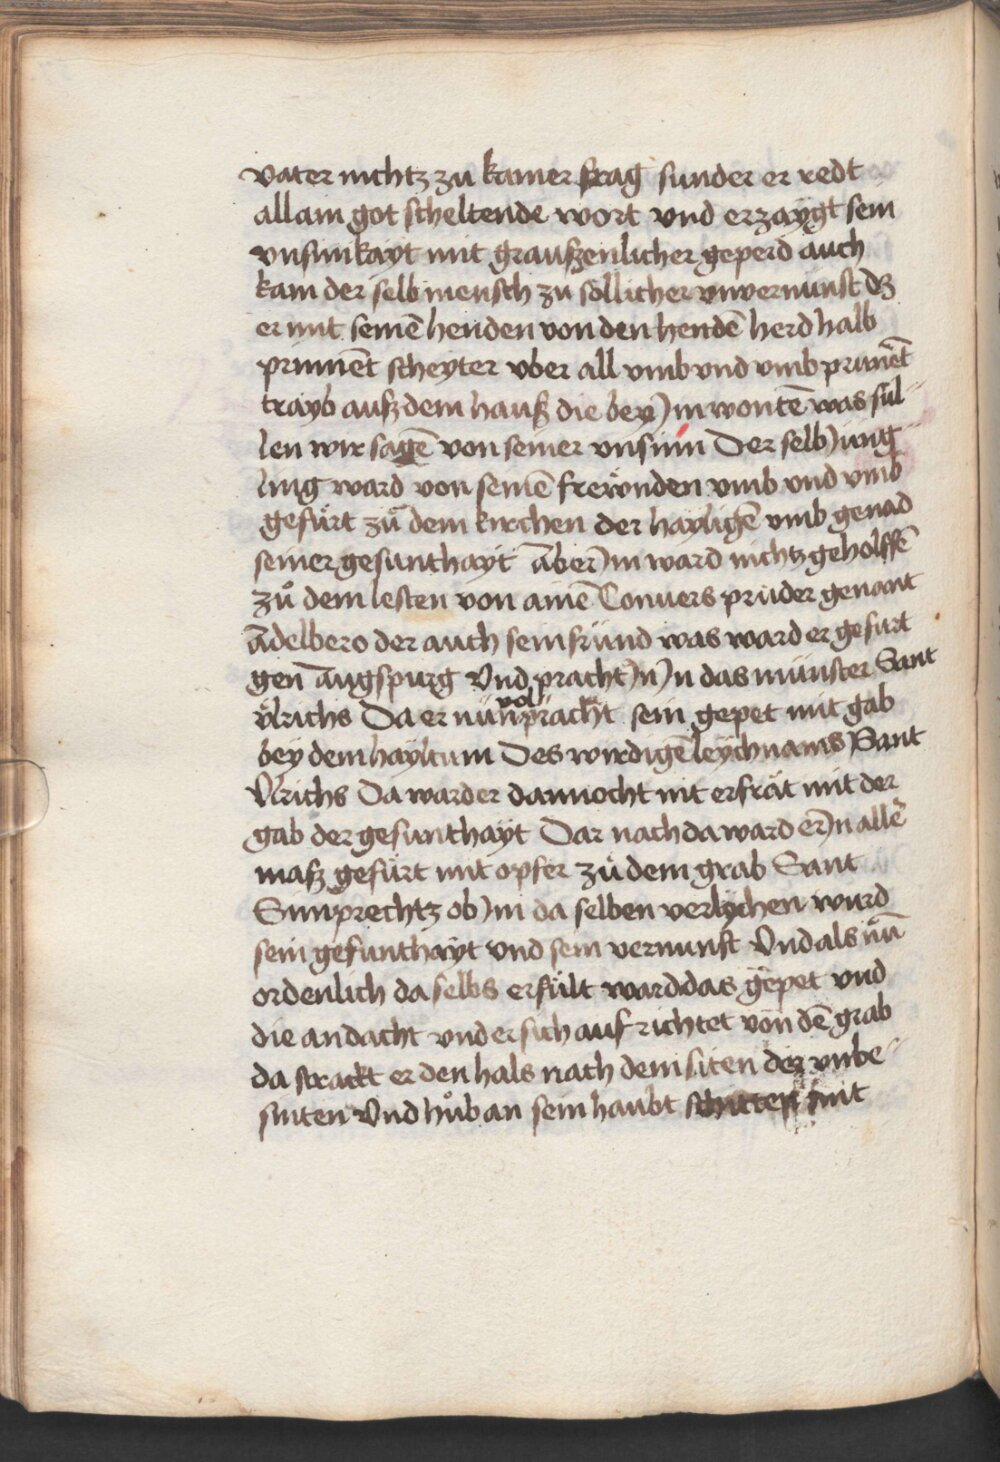 vater nichtz zu kainer frag sunder er redt
allain got scheltende wort vnd erzaygt sein
vnsinikayt mit graußenlicher geperd auch
kam der selb mensch zu söllicher vnvernunft dz
er mit seinē henden von den hendē herd halb
prinnēt scheyter vber all vmb vnd vmb prinnēt
trayb auß dem hauß die bey jm wontē was sül-
len wir sagē von seiner vnsinn Der selb jung
ling ward von seinē frewnden vmb vnd vmb
gefürt zů dem kirchen der hayligē vmb genad
seiner gesunthayt Aber jm ward nichtz geholffē
zů dem lesten von ainē Conuers prüder genant
Adelbero der auch sein fründ was ward er gefürt
gen augspurg Vnd pracht jn jn das münster Sant
Vlrichs Da er nün volpracht sein gepet mit gab
bey dem hayltum Des wirdigē leychnams Sant
Vlrichs Da ward er dannocht nit erfrät mit der
gab der gesunthayt Dar nach da ward er jn allē
maß gefürt mit opfer zů dem grab Sant
Simprechtz ob jm da selben verlychen wurd
sein gesunthayt vnd sein vernunft Vnd als nūn
ordenlich da selbs erfült ward das gepet vnd
die andacht vnd er sich auf richtet von dē grab
da strackt er den hals nach dem siten der vnbe-
sinten Vnd hůb an sein haubt schitten mit